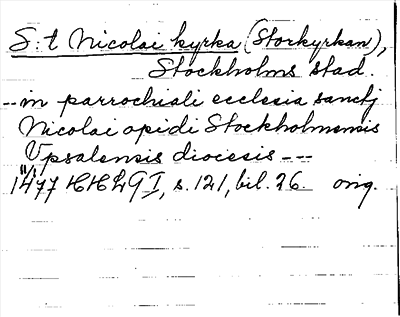 S:t Nicolai kyrka (Storkyrkan),
Stockholms stad.
-- in parrochiali ecclesia sanctj
Nicolai opidi Stockholmensis
Vpsalensis diocesis ---
11/1
1477 HHLG I, s. 121, bil. 26. orig.